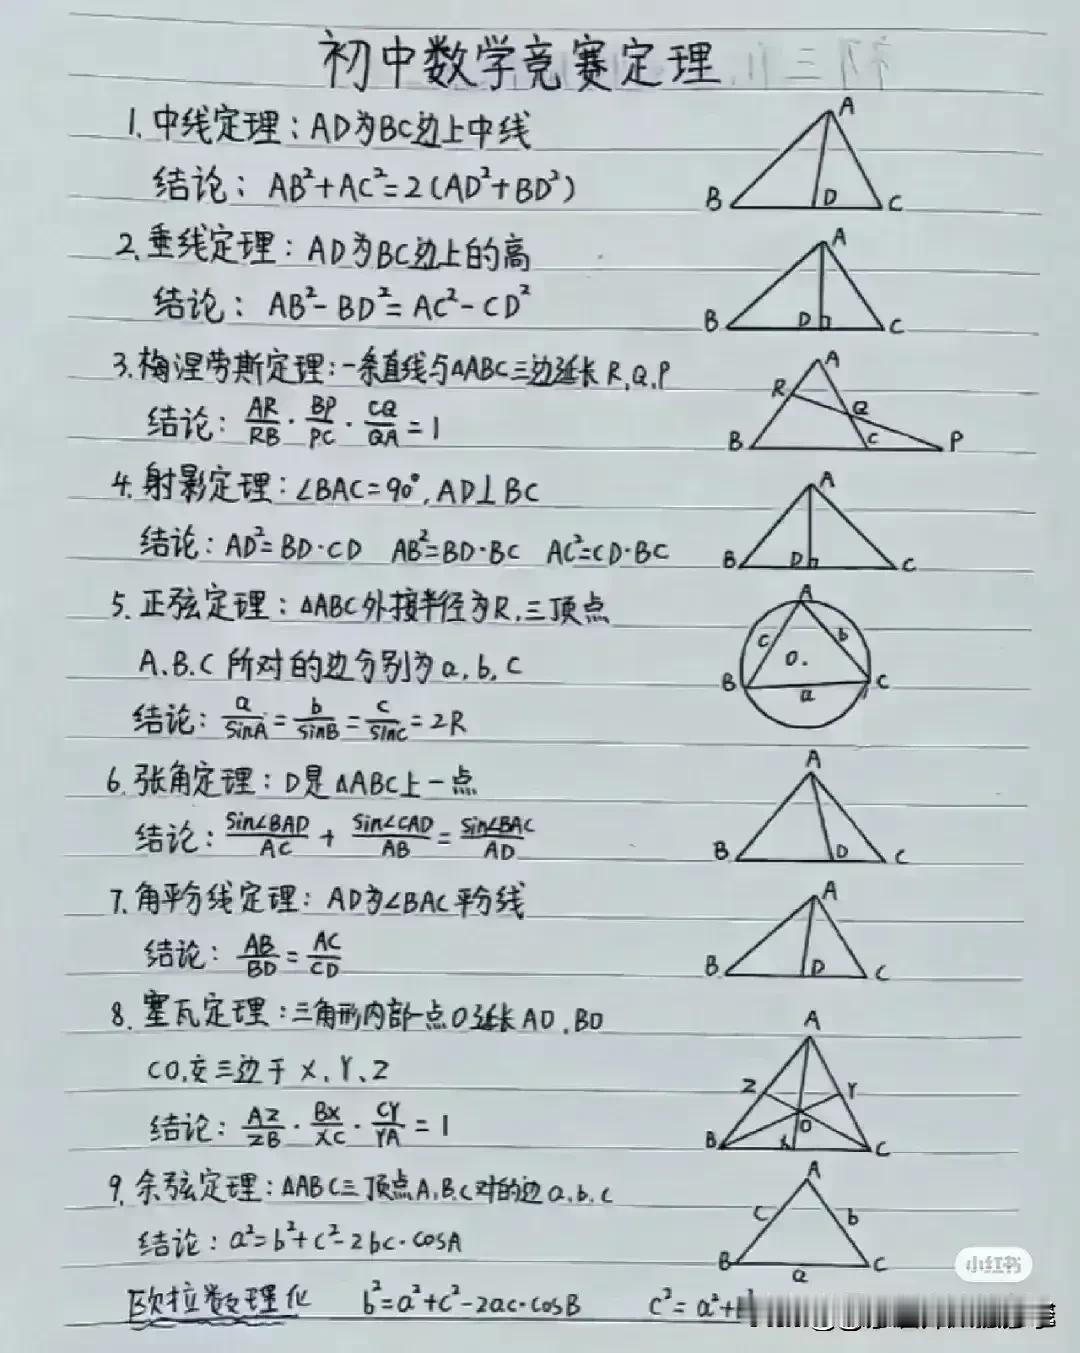 初中数学竞赛定理
1. 中线定理：AD为BC边上中线
结论：AB²+AC²=2(AD²+BD²)
A
B D C
2. 垂线定理：AD为BC边上的高
结论：AB²-BD²=AC²-CD²
A
B D C
3. 梅涅劳斯定理：一条直线与△ABC三边延长 R,Q,P
结论：AR/RB · BP/PC · CQ/QA = 1
A
R
Q
B C P
4. 射影定理：∠BAC=90°, AD⊥BC
结论：AD²=BD·CD AB²=BD·BC AC²=CD·BC
A
B D C
5. 正弦定理：△ABC外接半径为R,三顶点
A.B.C 所对的边分别为a,b,c
结论：a/sinA = b/sinB = c/sinc = 2R
A
c b
O.
B a C
6. 张角定理：D是△ABC上一点
结论：sin∠BAD/AC + sin∠CAD/AB = sin∠BAC/AD
A
B D C
7. 角平分线定理：AD为∠BAC平分线
结论：AB/BD = AC/CD
A
B D C
8. 塞瓦定理：三角形内部一点O延长AO,BO
CO,交三边于 X、Y、Z
结论：AZ/ZB · BX/XC · CY/YA = 1
A
Z Y
O
B X C
9. 余弦定理：△ABC三顶点A,B,C对的边a,b,c
结论：a²=b²+c²-2bc·cosA
A
c b
B a C
小红书
欧拉数理化 b²=a²+c²-2ac·cosB c²=a²+